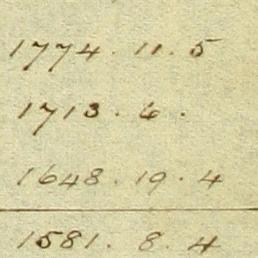 1774. 11. 5
1713. 6.
1648. 19. 4
1581. 8. 4